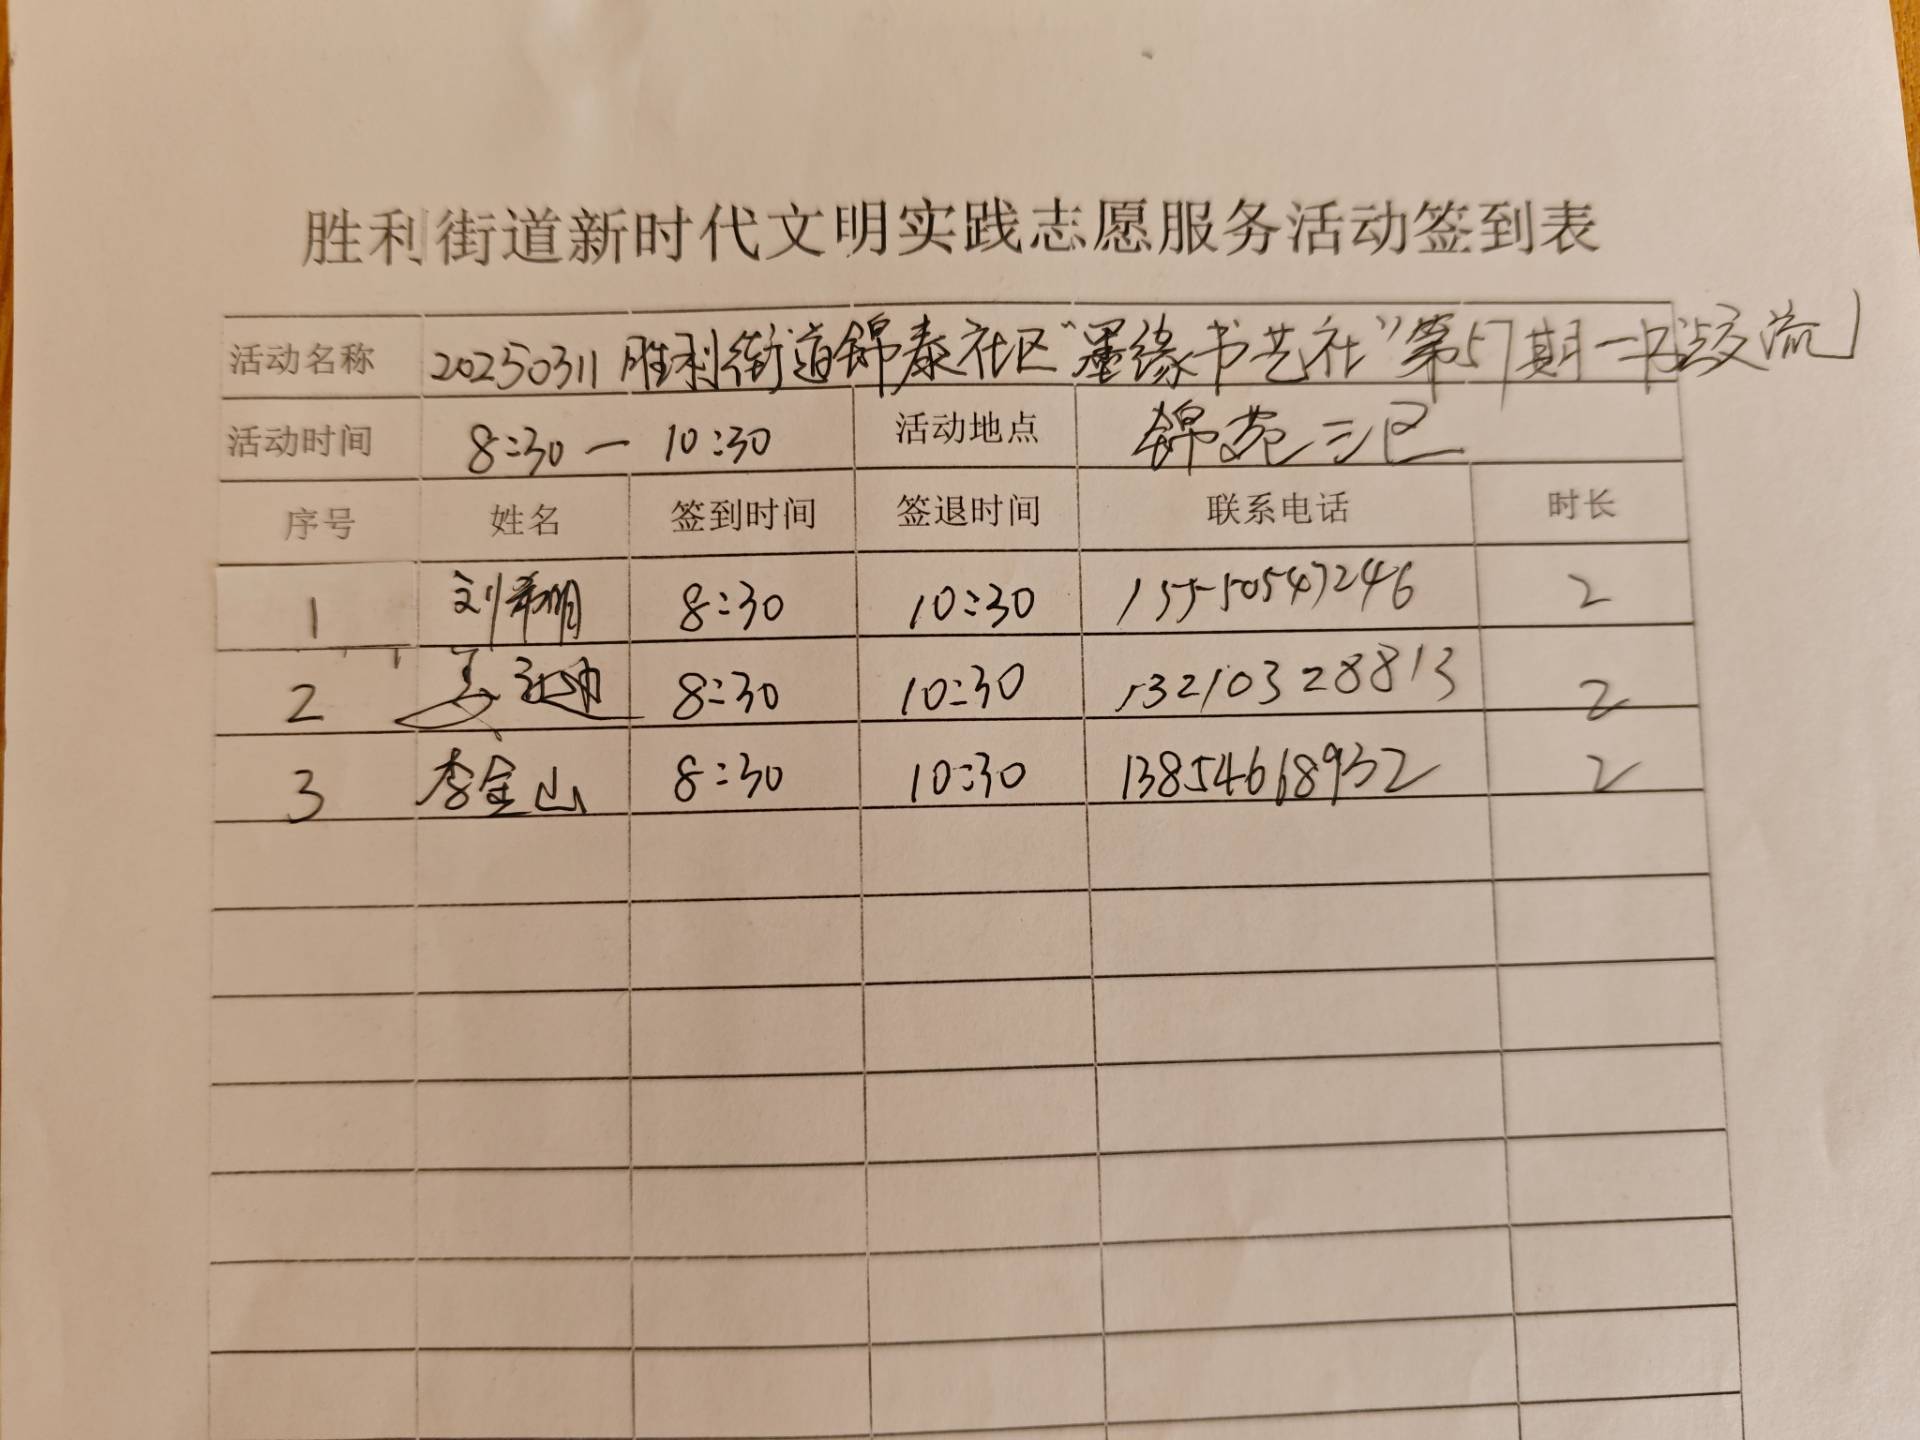 胜利街道新时代文明实践志愿服务活动签到表
活动名称 20250311 胜利街道锦泰社区“墨缘书艺社”第57期—书法交流
活动时间 8:30 — 10:30 活动地点 锦苑三区
序号 姓名 签到时间 签退时间 联系电话 时长
1 刘希明 8:30 10:30 15550547246 2
2 8:30 10:30 13210328813 2
3 李金山 8:30 10:30 13854618932 2